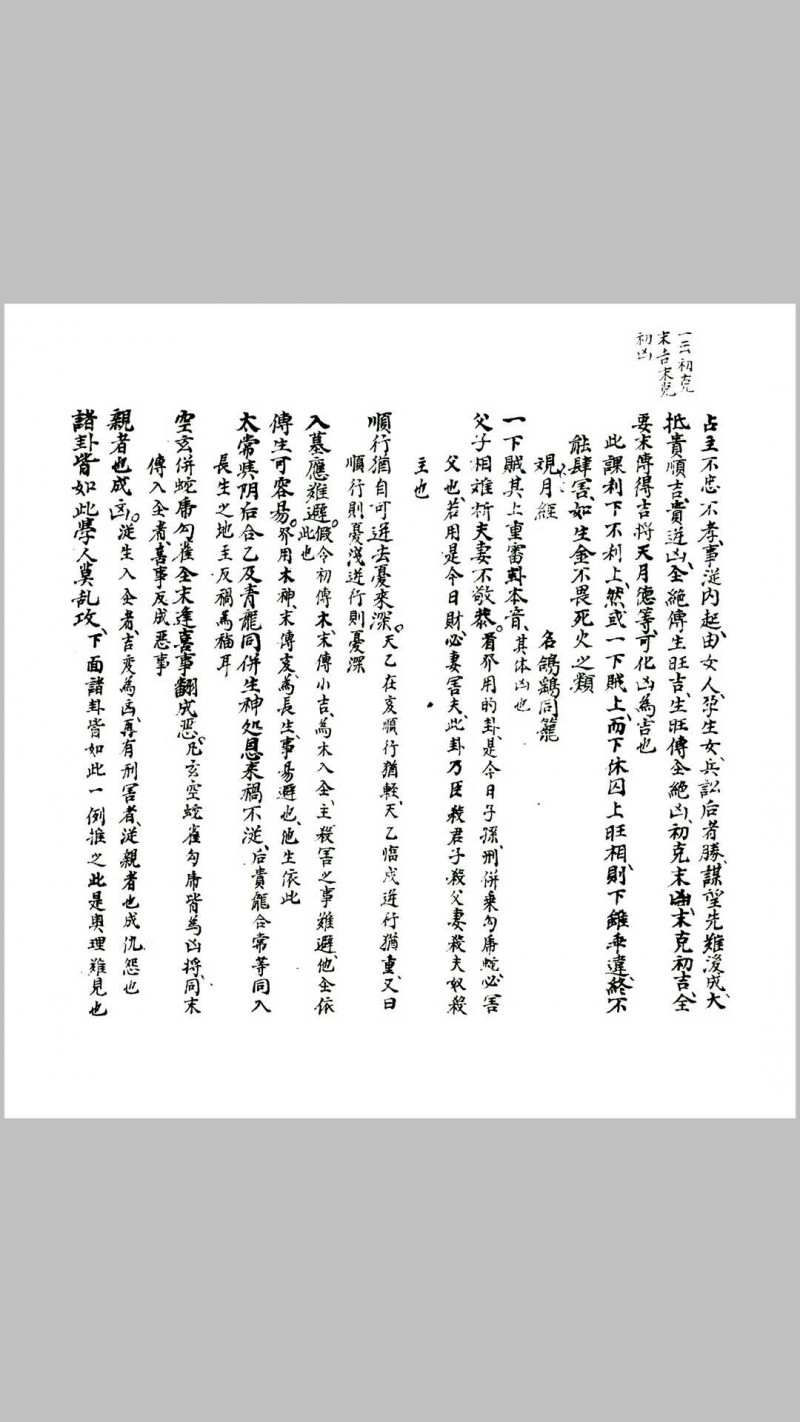 一云初克
末吉末克
初凶
占主不忠不孝、事従内起、由女人、孕生女、兵訟后者勝、謀望先難後成、大
抵貴順吉、貴逆凶、全絶傳生旺吉、生旺傳全絶凶、初克末凶、末克初吉、全
要末傳得吉将、天月德等、可化凶為吉也
此課利下不利上、然或一下賊上、而下休囚上旺相、則下雖乖違、終不
能肆害、如生金不畏死火之類
覌月經 名鴿鷂同籠
一下賊其上重審卦本音、其体凶也
父子相雄析夫妻不敬恭。看発用的卦、是今日子孫、刑併乗勾虎蛇、必害
父也、若用是今日財、必妻害夫、此卦乃臣殺君子殺父妻殺夫奴殺
主也
順行猶自可逆去憂來深。天乙在亥順行猶輕、天乙臨戌逆行猶重、又曰
順行則憂浅逆行則憂深
入墓應難避。假令初傳木、末傳小吉、為木入全、主殺害之事難避、他全依
此也
傳生可容易。発用木神、末傳亥、為長生、事易避也、他生依此
太常與阴后合乙及青龍同併生神処恩來禍不従、后貴龍合常等同入
長生之地主反禍為福耳
空玄併蛇虎勾雀全末逢喜事翻成惡。凡玄空蛇雀勾虎皆為凶将、同末
傳入全者、喜事反成惡事
親者也成凶。従生入全者、吉変為凶、再有刑害者、従親者也成仇怨也
諸卦皆如此學人莫乱攻、下面諸卦皆如此一例推之此是奥理難見也